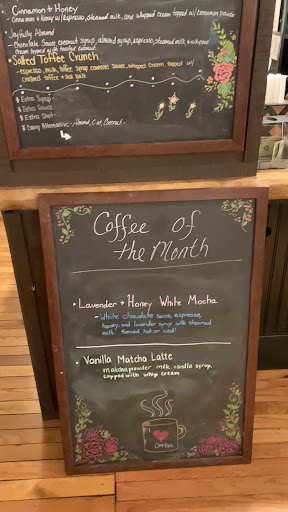 Cinnamon & Honey
Cinnamon & honey w/ espresso, steamed milk, and whipped cream topped w/ cinnamon powder
Joyfully Almond
- Chocolate Sauce, coconut syrup, almond syrup, espresso, steamed milk + whipped
cream topped with toasted coconut.
• Salted Toffee Crunch
- espresso, milk, toffee syrup, caramel sauce, whipped cream, topped w/
crushed toffee + sea salt
$ Extra Syrup -
$ Extra Sauce -
$ Extra Shot -
$ Dairy Alternative - Almond, Oat, Coconut -
Coffee of
the Month
• Lavender + Honey White Mocha
- White chocolate sauce, espresso,
honey, and lavender syrup with steamed
milk. Served hot or iced!
• Vanilla Matcha Latte
matcha powder, milk, vanilla syrup,
topped with whip cream
I
Coffee